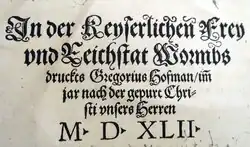 In der Keyserlichen Frey
vnd Reichstat Wormbs
druckts Gregorius Hofman/im
jar nach der gepurt Chri-
sti vnsers Herren
M· D· XLII·